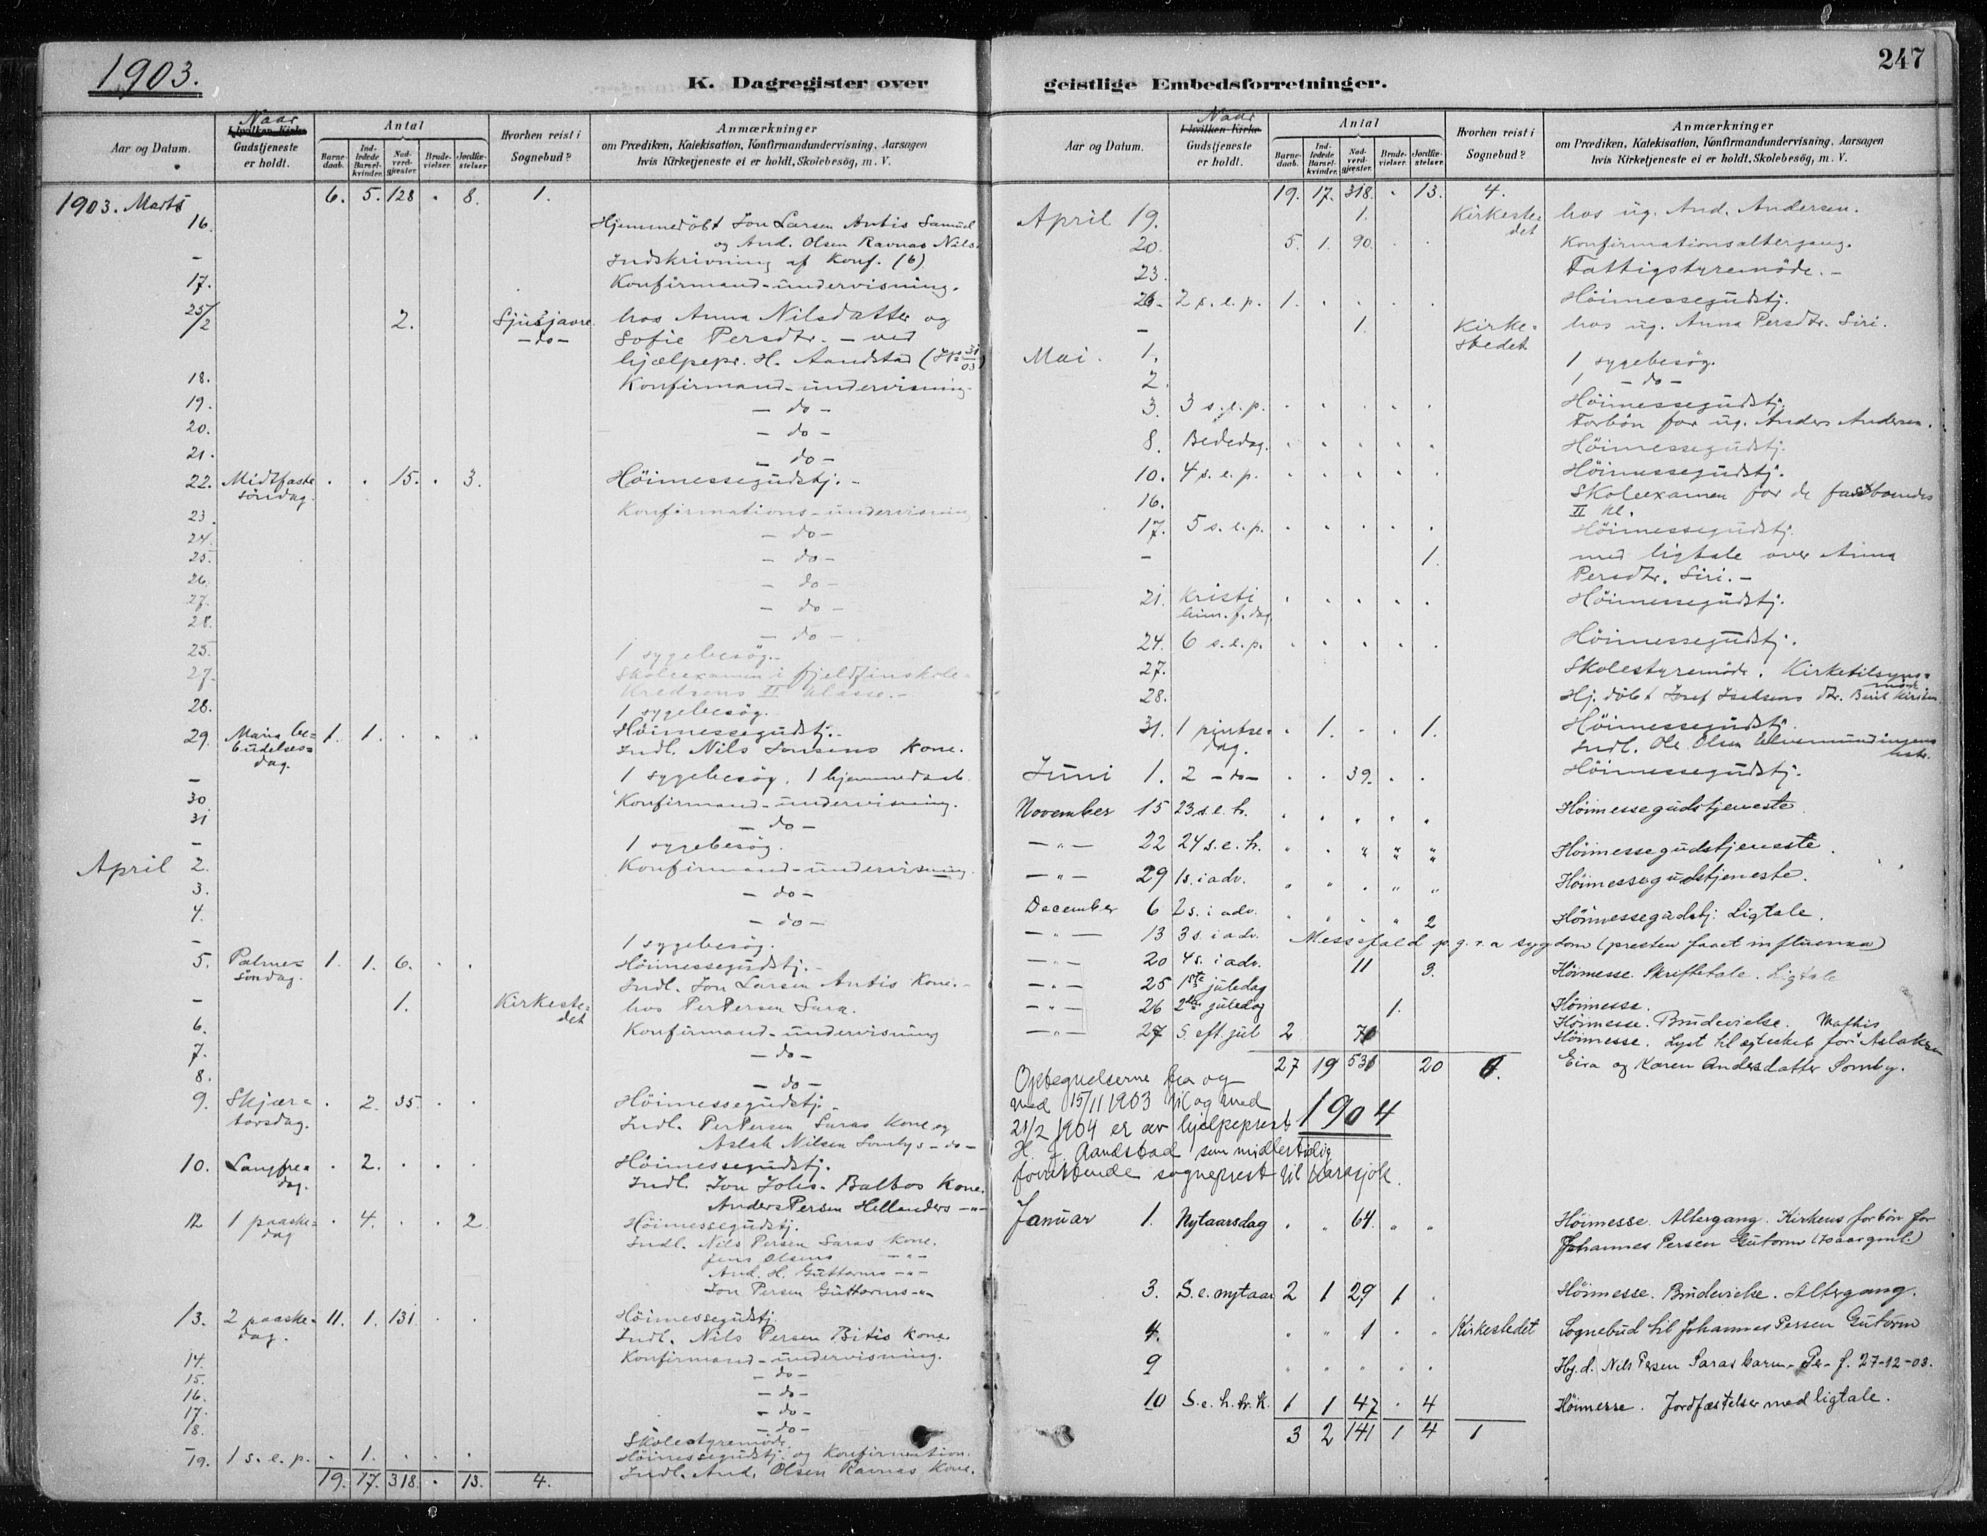 1903.
K. Dagregister over
Naar
Aar og Datum.
Hvilken Kirke
Gudstjeneste
er holdt.
Antal
Barne-
daab.
Ind-
ledede
Barsel-
kvinder.
Nad-
verd-
gjæster.
Brude-
vielser.
Jordfæ-
stelser.
Hvorhen reist i
Sognebud?
Anmærkninger
om Prædiken, Katekisation, Konfirmandundervisning, Aarsagen
hvis Kirketjeneste ei er holdt, Skolebesøg, m. V.
1903. Marts 6. 5. 128 . 8. 1.
16. Hjemmedøbt Jon Larsen Antis Samuel
og And. Olsen Ravnas Nils.
– Indskrivning af Konf. (6)
17. Konfirmand-undervisning.
25/2 2. hos Anna Nilsdatter og
– do – Sofie Persdtr. – ved
hjælpepr. H. Aandstad
18. Konfirmand-undervisning
19. – do –
20. – do –
21. – do –
22. Midtfaste . . 15. . 3. Høimessegudstj. –
søndag.
23. Konfirmations-undervisning
24. – do –
25. – do –
26. – do –
27. – do –
28. – do –
25. 1 sygebesøg. –
27. Skoleexamen i fjeldfinskole-
kredsens II klasse. –
28. 1 sygebesøg.
29. Maria be- 1. 1. . . . Høimessegudstj. –
budelses- Indl. Nils Jonsens Kone.
dag.
– 1 sygebesøg, 1 hjemmedaab.
30 Konfirmand-undervisning.
31 – do –
– 1 sygebesøg.
April 2. Konfirmand-undervisning.
3. – do –
4. – do –
– 1 sygebesøg.
5. Palme- 1. 1. 6. . . Høimessegudstj. –
søndag. Indl. Jon Larsen Antis Kone. –
– 1. Kirkeste- hos Per Persen Sara.
det
6. Konfirmand-undervisning
7. – do –
8. – do –
9. Skjær- . 2. 35. . . Høimessegudstj.
torsdag. Indl. Per Persen Saras Kone og
Aslak Nilsen Sombys – do –
10. Langfre- . 2. . . . Høimessegudstj.
dag. Indl. Jon Johs. Balbos Kone.
Anders Persen Hellanders – " –
12 1 paaske- . 4. . . 2. Høimessegudstj.
dag Indl. Nils Persen Saras Kone.
Jens Olsens – " –
And. H. Guttorms – " –
Jon Persen Guttorms – " –
13. 2 paaske- 11. 1. 131. . . Høimessegudstj
dag. Indl. Nils Persen Bitis Kone
14. Konfirmand-undervisning.
15. – do –
16. – do –
17. – do –
18. – do –
Skolestyremøde
19. 1 s. e. p. . 1. . . . Høimessegudstj. og Konfirmation.
19. 17. 318. . 13. 4. Indl. And. Olsen Ravnas Kone.
247
geistlige Embedsforretninger.
Naar
Aar og Datum.
Hvilken Kirke
Gudstjeneste
er holdt.
Antal
Barne-
daab.
Ind-
ledede
Barsel-
kvinder.
Nad-
verd-
gjæster.
Brude-
vielser.
Jordfæ-
stelser.
Hvorhen reist i
Sognebud?
Anmærkninger
om Prædiken, Katekisation, Konfirmandundervisning, Aarsagen
hvis Kirketjeneste ei er holdt, Skolebesøg, m. V.
19. 17. 318. . 13. 4.
April 19. 1. Kirkeste- hos ug. And. Andersen.
det
20. 5. 1. 90. . . Konfirmationsaltergang.
23. Fattigstyremøde. –
26. 2 s. e. p. 1. . . . . Høimessegudstj.
– 1. Kirke- hos ug. Anna Persdtr. Siri.
stedet
Mai. 1. 1 sygebesøg.
2. 1 – do –
3. 3 s. e. p. . . . . . Høimessegudstj.
Forbøn for ug. Anders Andersen.
8. Bededag. . . . . . Høimessegudstj.
10. 4 s. e. p. . . . . . Høimessegudstj.
16. Skoleexamen for de fastboendes
II kl.
17. 5 s. e. p. . . . . . Høimessegudstj.
– 1. med ligtale over Anna
Persdtr. Siri. –
21. Kristi . . . . . Høimessegudstj.
him. f. dag
24. 6 s. e. p. . . . . . Høimessegudstj.
27. Skolestyremøde. Kirketilsyns-
møde
28. Hj. døbt Josef Isaksens dtr. Berit Kirsten
31. 1 pintse- . 1. . . 1. Høimessegudstj.
dag. Indl. Ole Olsen Elvemundingens
hstr.
Juni 1. 2 – do – . . 39. . . Høimessegudstj.
November 15 23 s. e. tr. . . . . . Høimessegudstjeneste
– " – 22 24 s. e. tr. " . " " " Høimessegudstjeneste.
– " – 29 1 s. i adv. " " . " " Høimessegudstjeneste.
December 6 2 s. i adv. . . . . 2 Høimessegudstj. Ligtale.
– " – 13 3 s. i adv. Messefald p. g. r. a sygdom (presten faaet influensa)
– " – 20 4 s. i adv. 11 3. Høimesse. Skriftetale. Ligtale
– " – 25 1ste juledag Høimesse.
– " – 26 2den juledag 1. Høimesse. Brudevielse.
– " – 27 S. eft. jul 2 70 Høimesse. Lyst til egteskab for Mathis Aslaksen
27 19 531 20 Eira og Karen Andersdatter Somby.
Optegnelserne fra og
med 15/11 1903 til og med
21/2 1904 er av hjelpeprest
H. J. Aandstad som midlertidig
fungerende sogneprest til Karasjok.
1904
Januar 1. Nytaarsdag . " 64. " " Høimesse. Altergang. Kirkens forbøn for
Johannes Persen Gutorm (70 aar gml.)
3. S. e. nytaar 2 1 29 1 . Høimesse. Brudevielse. Altergang.
4. " " 1 . . Kirkestedet Sognebud til Johannes Persen Gutorm
9 " " " " " Hj. d. Nils Persen Saras barn – Per – f. 27-12-03.
10 S. e. h. tr. k. 1 1 47 . 4 Høimesse. Jordfæstelser med ligtale.
3 2 141 1 4 1